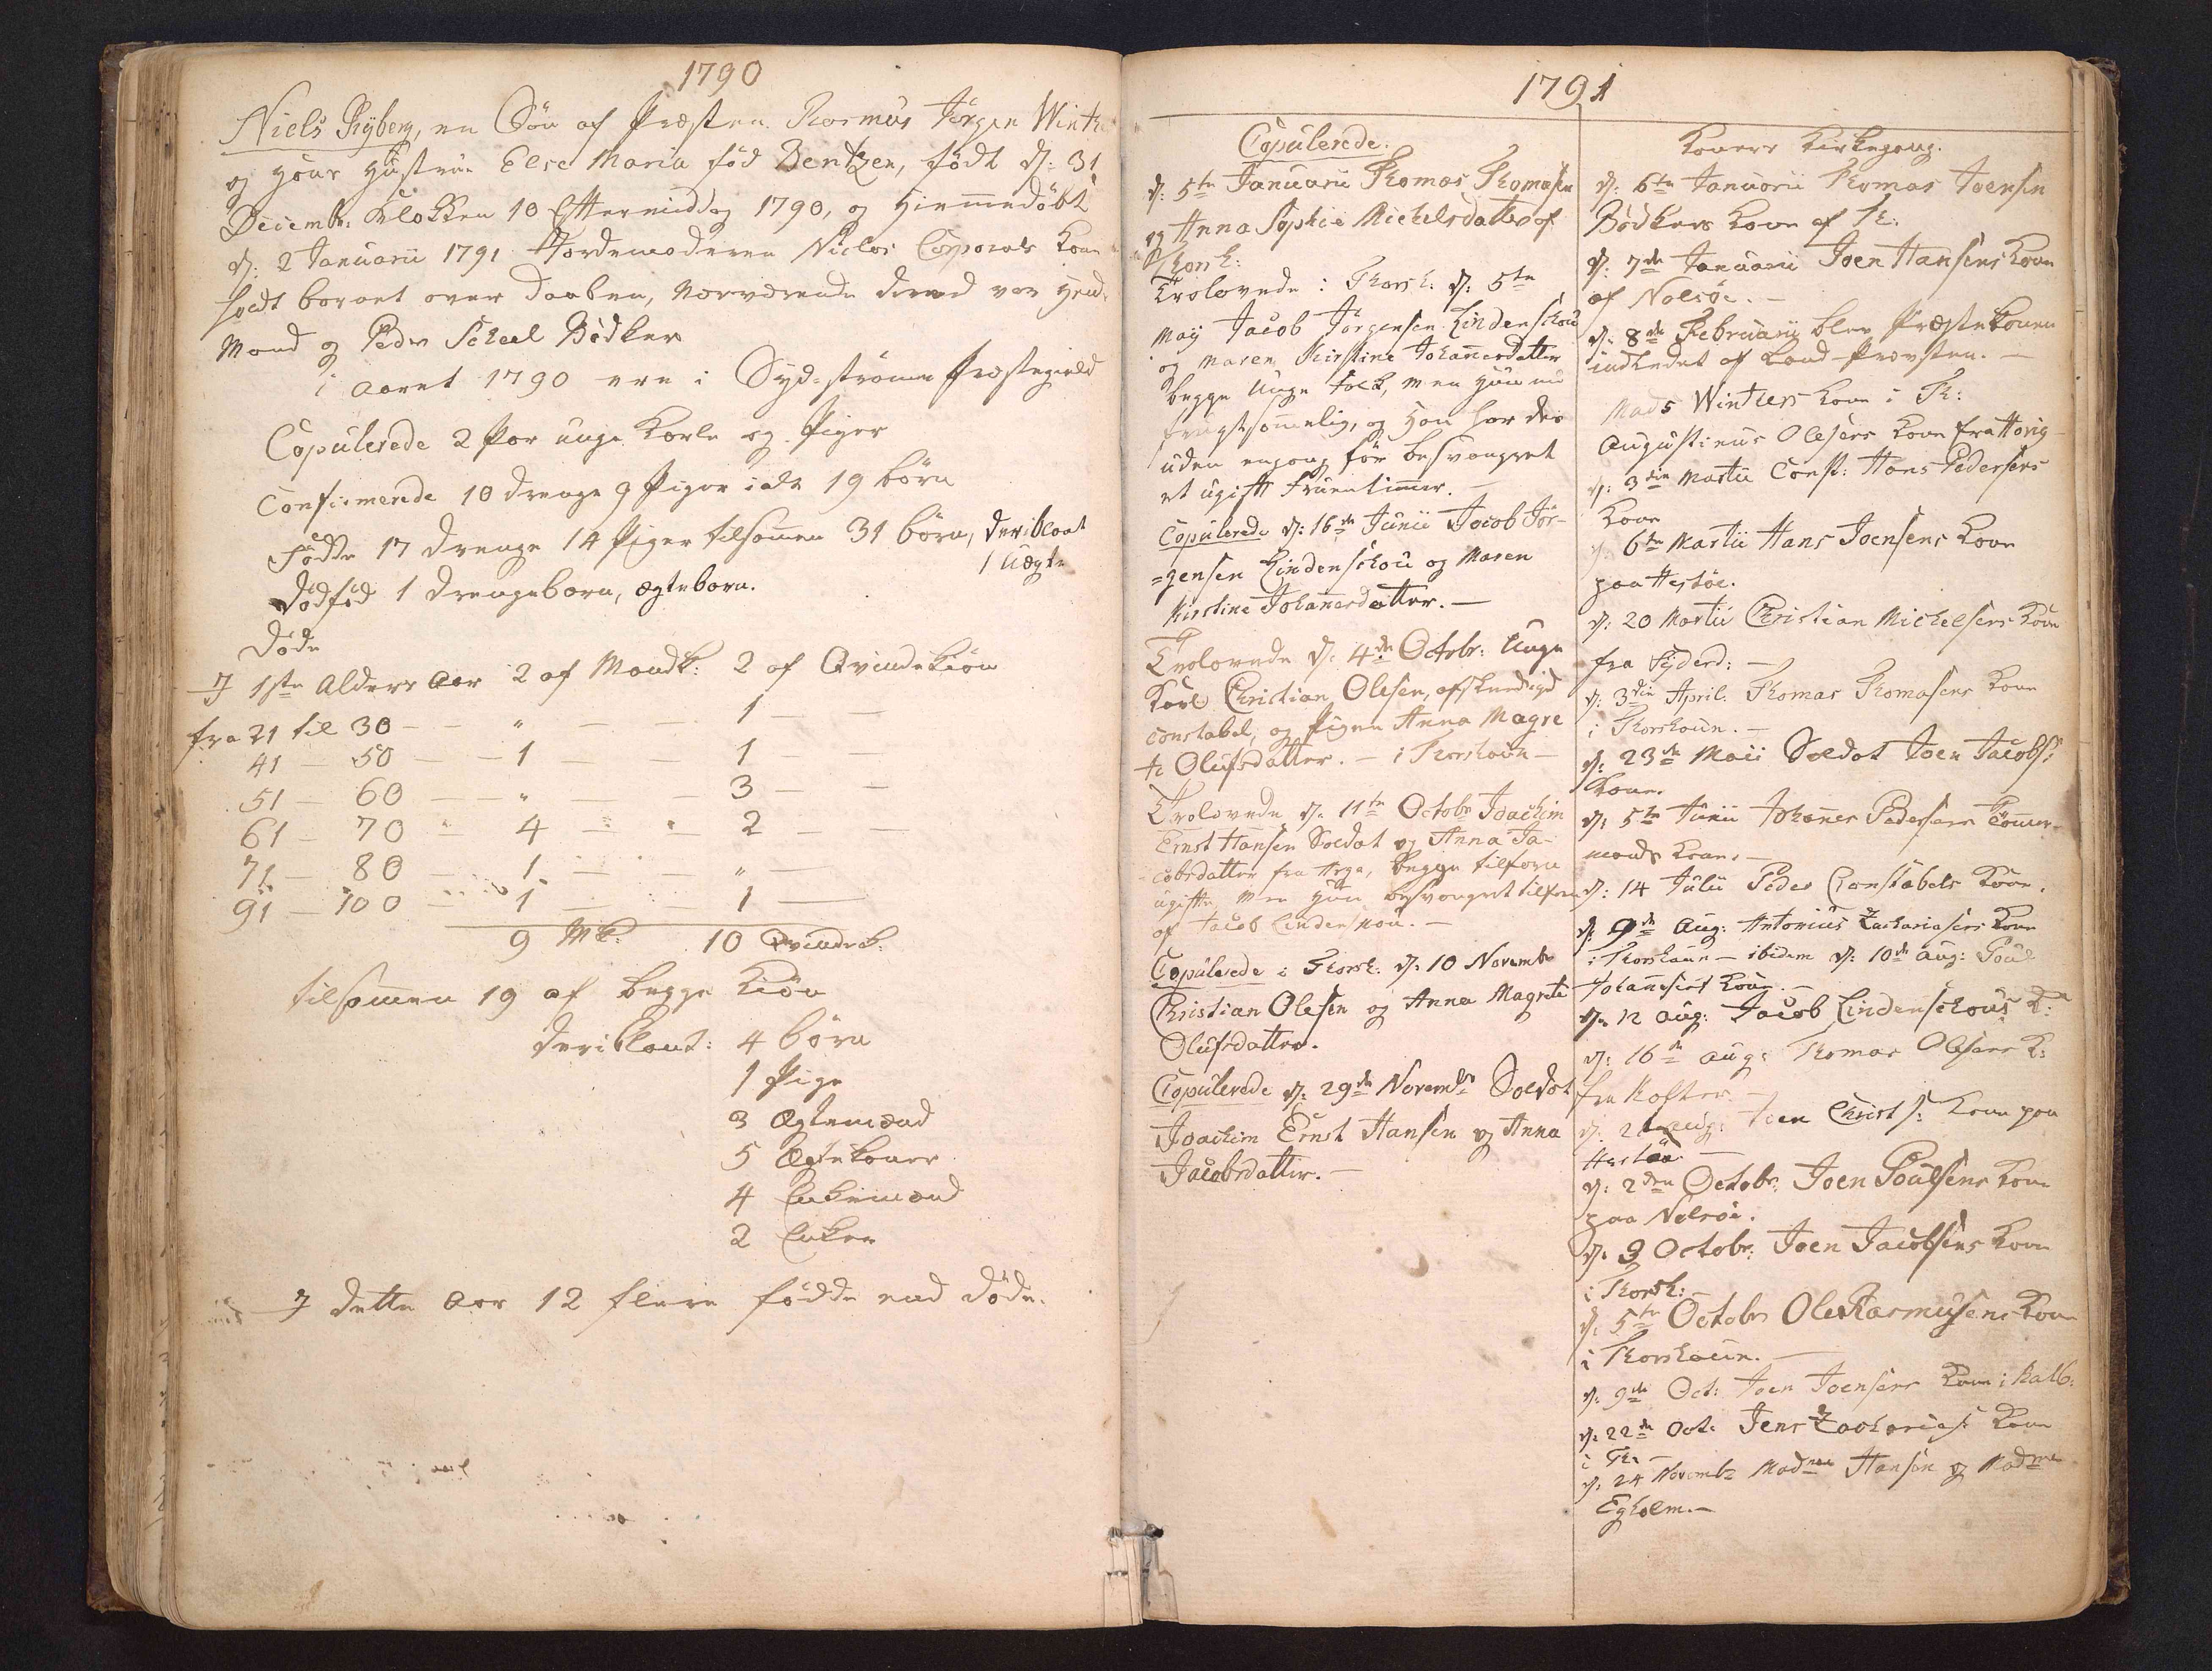 1790
Niels Ryberg, en Søn af Præsten Rasmus Jörgen Winth
og hans Hustrue Else Maria fød Bentzen, födt d: 31
Decembr: Klokken 10 Eftermiddag 1790, og hiemmedöbt
d: 2 Januarii 1791 Jordemoderen Niclos Corporals Kone
holdt barnet over Daaben, nærværende derved var hendes
Mand og Peder Scheel Bödker
i Aaret 1790 ere i Syd-strömøe Præstegield
Copulerede 2 Par unge Karle og Piger
Confirmerede 10 Drenge 9 Piger ialt 19 börn
Födde 17 Drenge 14 Piger tilsammen 31 börn, deriblant
1 uægte
Dödfød 1 Drengebarn, ægtebarn.
Döde
I 1ste Alders Aar 2 af Mandk: 2 af Qvindekiön
fra 21 til 30 — — " — — 1 — —
41 — 50 — — 1 — — 1 — —
51 — 60 — — " — — 3 — —
61 — 70 " — 4 — " — 2 — —
71 — 80 — 1 — — " — —
91 — 100 — 1 — — 1 —
9 Mk: 10 Qvindek:
tilsammen 19 af begge Kiön
deriblant: 4 börn
1 Pige
3 Ægtemænd
5 Ægtekoner
4 Enkemænd
2 Enker
I dette Aar 12 flere födde end döde.
1791
Copulerede.
d: 5te Januarii Thomas Thomasen
og Anna Sophie Michelsdatter af
Thorsh:
Trolovede i Thorsh: d: 5te
Maij Jacob Jörgensen Lindenschou
og Maren Kirstine Johannesdatter
begge unge folk, men hun nu
frugtsommelig, og han har des
uden engang för besvangret
et ugift Fruentimmer. —
Copulerede d: 16de Junii Jacob Jör-
=gensen Lindenschou og Maren
Kirstine Johannesdatter. —
Trolovede d: 4de Octobr: Unge
Karl Christian Olesen, afskediget
constabel, og Pigen Anna Magre
te Olufsdatter. — i Thorshavn —
Trolovede d: 11te Octobr Joachim
Ernst Hansen Soldat og Anna Ja-
cobsdatter fra Argе, begge tilforn
ugifte, men hun besvangret tilforn
af Jacob Lindenskou. —
Copulerede i Thorsh: d: 10 Novembr
Christian Olesen og Anna Magrete
Olufsdatter.
Copulerede d: 29de Novembr Soldat
Joachim Ernst Hansen og Anna
Jacobsdatter. —
Koners Kirkegang.
d: 6te Januarii Thomas Joensen
Bödkers Kone af Th:
d: 7de Januarii Joen Hansens Kone
af Nolsöe. —
d: 8de Februarij blev Præstekonen
indledet af Land-Provsten. —
Mads Winthers Kone i Th:
Augustinus Olesens Kone fra Hörig
d: 3die Martii Const: Hans Pedersens
Kone
d: 6te Martii Hans Joensens Kone
paa Hestöe.
d: 20 Martii Christian Michelsens Kone
fra Syderd: —
d: 3die April. Thomas Thomasens Kone
i Thorshavn. —
d: 23de Maii Soldat Joen Jacobs:
Kone.
d: 5te Junii Johannes Pedersens Tömmer-
mands Kone. —
d: 14 Julii Peder Constabels Kone.
d: 9de Aug: Antonius Zachariasens Kone
i Thorshavn — ibidem d: 10de Aug: Poul
Johannesens Kone. —
d: 12 Aug: Jacob Lindenschous K:
d: 16de Aug: Thomas Olesens K:
fra Kolter. —
d: 21 Aug: Joen Christ s: Kone paa
Hestöe. —
d: 2den Octobr: Joen Poulsens Kone
paa Nolsöe.
d: 3 Octobr: Joen Jacobsens Kone
i Thorsh:
d: 5te Octobr Ole Rasmusens Kone
i Thorshavn. —
d: 9de Oct: Joen Joensens Kone i Kalb:
d: 22de Oct: Jens Zacharias: Kone
i Th: —
d: 24 Novembr Madme Hansen og Madme
Egholm. —